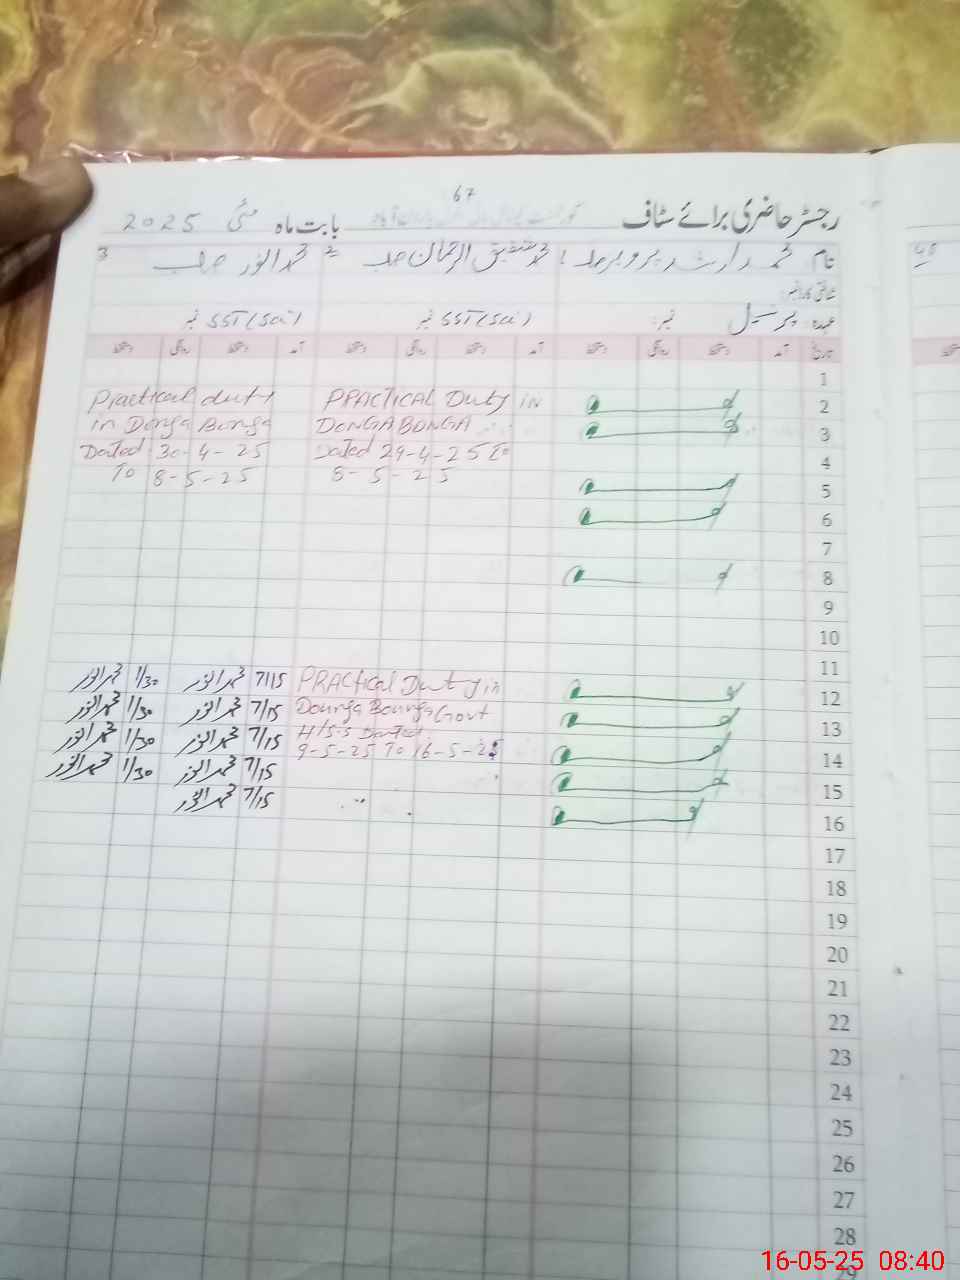 67
رجسٹر حاضری برائے سٹاف بابت ماہ مئی 2025
نام محمد ارشد 2 محمد شفیق الرحمان صاحب 3 محمد انور صاحب
شناختی کارڈ نمبر:
عہدہ: پرنسپل نمبر: SST(Sci) نمبر SST(Sci) نمبر
تاریخ آمد دستخط روانگی دستخط آمد دستخط روانگی دستخط آمد دستخط روانگی دستخط
1
2 PRACTICAL Duty in Practical duty
3 DONGA BONGA in Donga Bonga
4 Dated 29-4-25 To Dated 30-4-25
5 8-5-25 To 8-5-25
6
7
8
9
10
11
12 PRACTICAL Duty in 7/15 محمد انور 1/30 محمد انور
13 Dounga Bounga Govt 7/15 محمد انور 1/30 محمد انور
14 H/S-S Dated 7/15 محمد انور 1/30 محمد انور
15 9-5-25 To 16-5-25 7/15 محمد انور 1/30 محمد انور
16 7/15 محمد انور
17
18
19
20
21
22
23
24
25
26
27
28
29
16-05-25 08:40